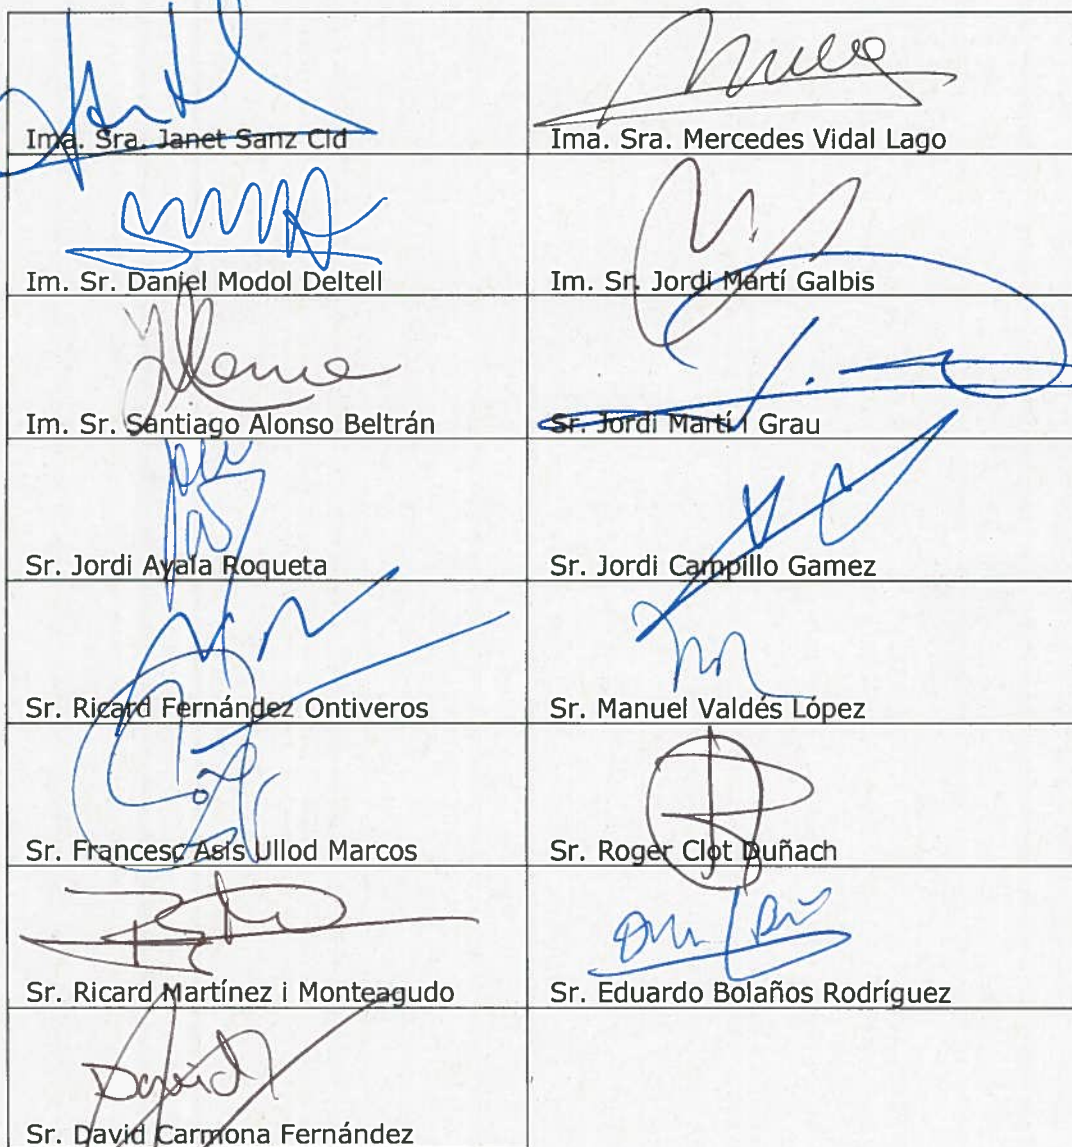 Ima. Sra. Janet Sanz Cid
Ima. Sra. Mercedes Vidal Lago
Im. Sr. Daniel Modol Deltell
Im. Sr. Jordi Martí Galbis
Im. Sr. Santiago Alonso Beltrán
Sr. Jordi Martí i Grau
Sr. Jordi Ayala Roqueta
Sr. Jordi Campillo Gamez
Sr. Ricard Fernández Ontiveros
Sr. Manuel Valdés López
Sr. Francesc Asís Ullod Marcos
Sr. Roger Clot Duñach
Sr. Ricard Martínez i Monteagudo
Sr. Eduardo Bolaños Rodríguez
David
Sr. David Carmona Fernández